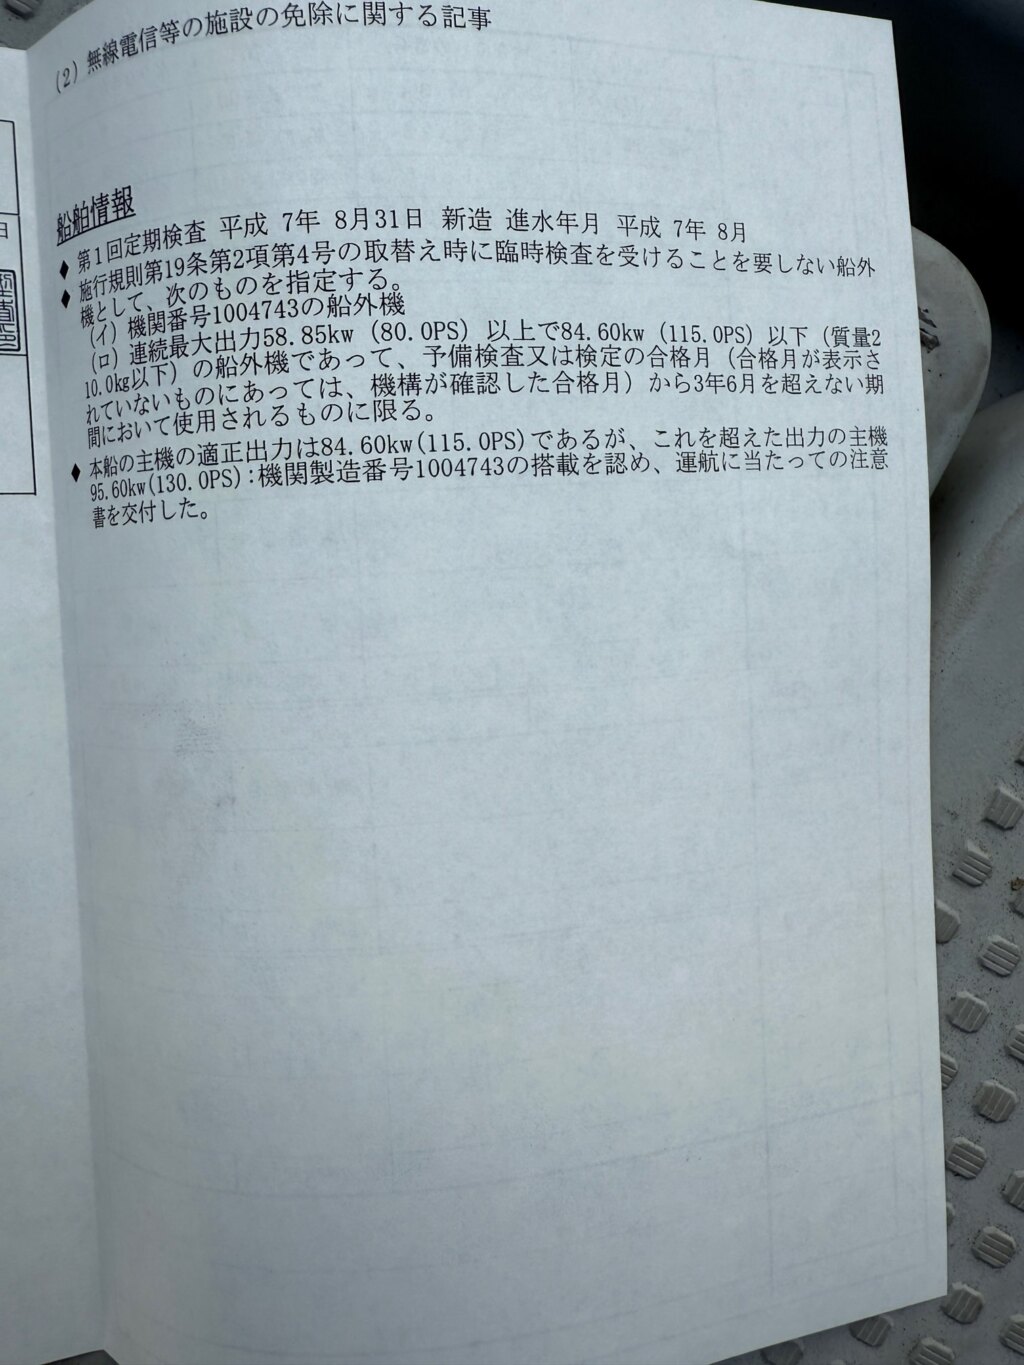 (2) 無線電信等の施設の免除に関する記事
船舶情報
◆ 第1回定期検査 平成 7年 8月31日 新造 進水年月 平成 7年 8月
◆ 施行規則第19条第2項第4号の取替え時に臨時検査を受けることを要しない船外
機として、次のものを指定する。
(イ) 機関番号1004743の船外機
(ロ) 連続最大出力58.85kw (80.0PS) 以上で84.60kw (115.0PS) 以下 (質量2
10.0kg以下) の船外機であって、予備検査又は検定の合格月 (合格月が表示さ
れていないものにあっては、機構が確認した合格月) から3年6月を超えない期
間において使用されるものに限る。
◆ 本船の主機の適正出力は84.60kw(115.0PS)であるが、これを超えた出力の主機
95.60kw(130.0PS):機関製造番号1004743の搭載を認め、運航に当たっての注意
書を交付した。
日